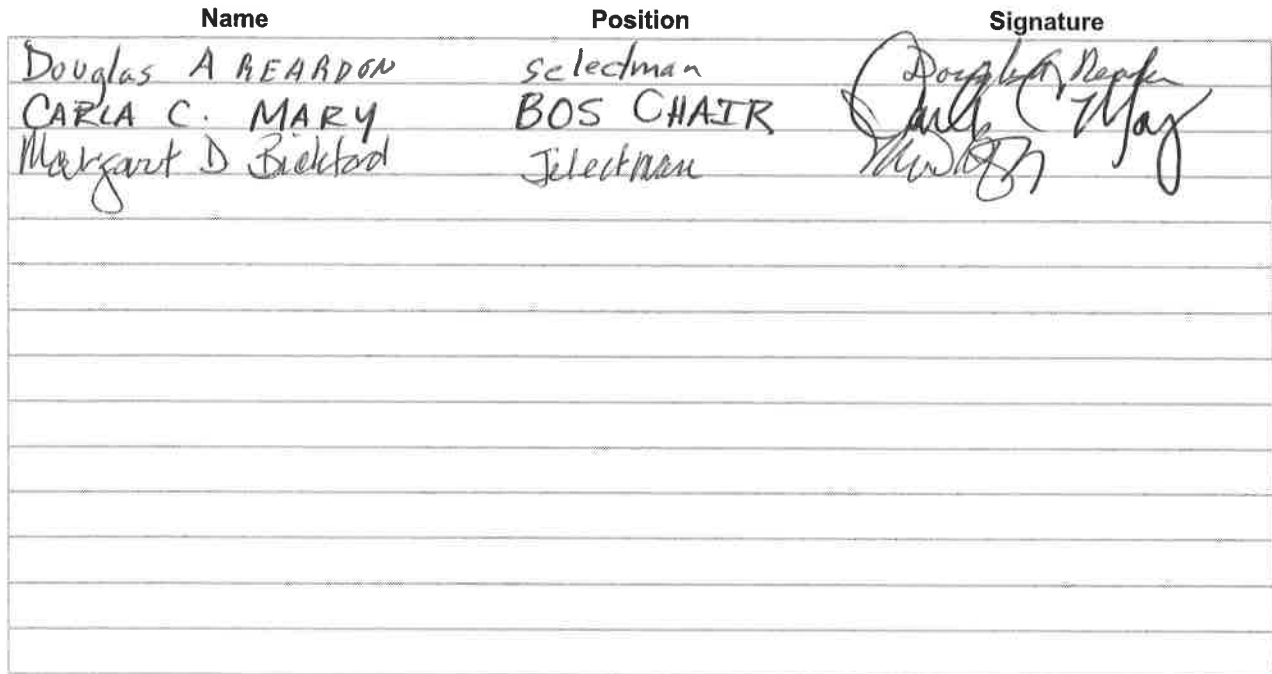 Name Position Signature
Douglas A REARDON selectman Douglas A Reardon
CARLA C. MARY BOS CHAIR Carla C Mary
Margaret D Bickford Selectman